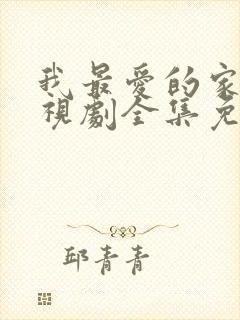 我最愛的家
視劇全集免
邱青青